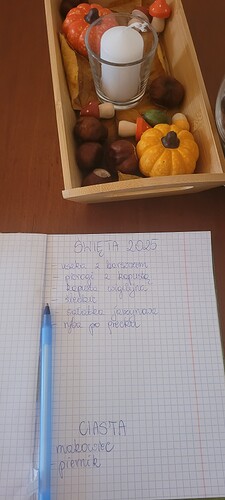 ŚWIĘTA 2025
- uszka z barszczem
- pierogi z kapustą
- kapusta wigilijna
- śledzie
- sałatka jarzynowa
- ryba po grecku
CIASTA
- makowiec
- piernik